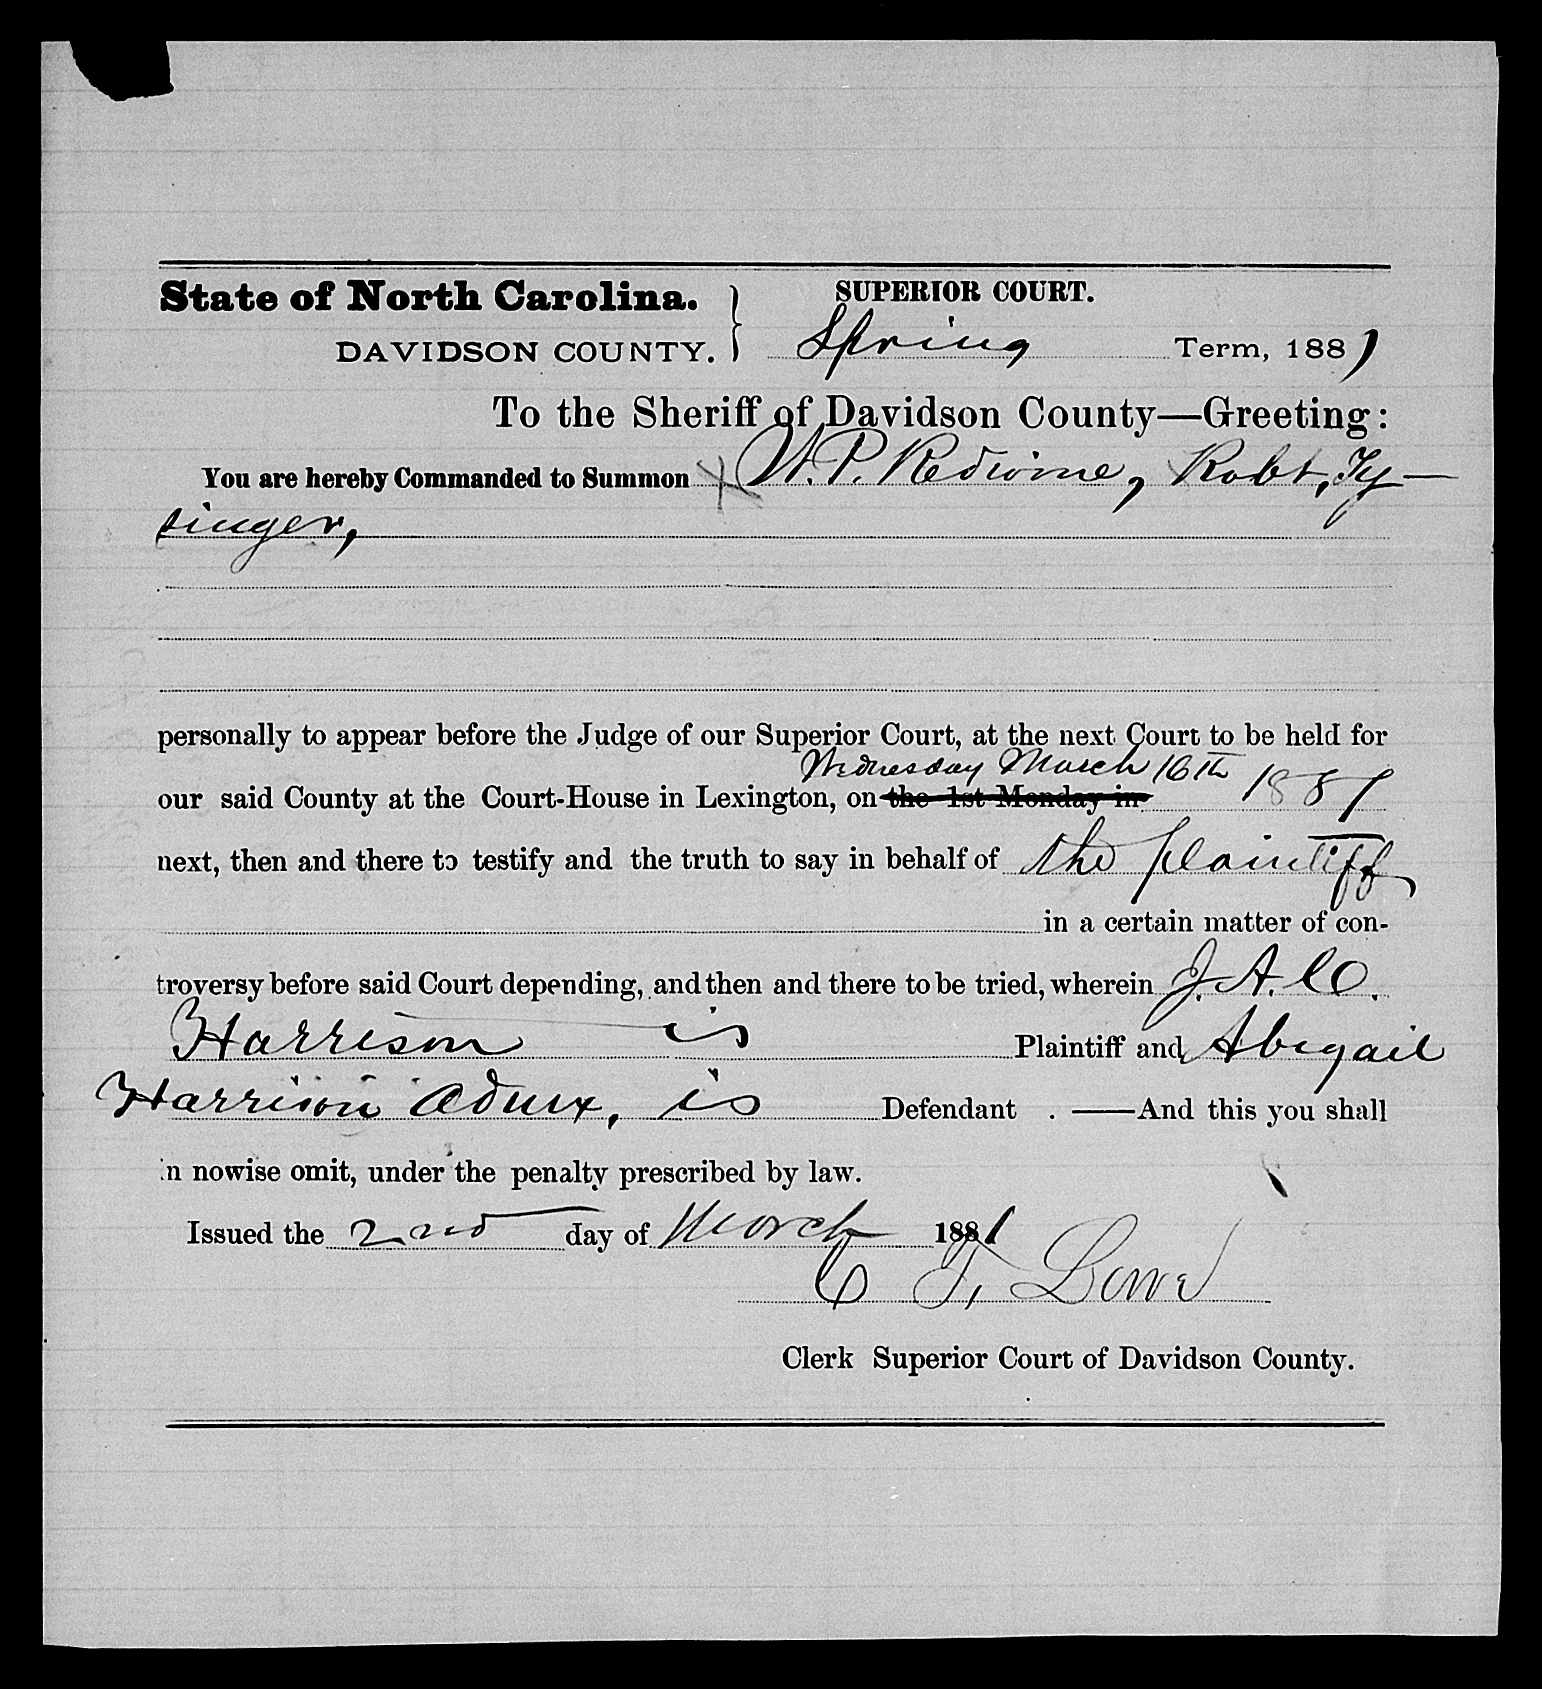 State of North Carolina. } SUPERIOR COURT.
DAVIDSON COUNTY. Spring Term, 1881
To the Sheriff of Davidson County—Greeting:
You are hereby Commanded to Summon X W. P. Redwine, Robt, Ty—
singer,
personally to appear before the Judge of our Superior Court, at the next Court to be held for
Wednesday March 16th 1881
our said County at the Court-House in Lexington, on the 1st Monday in
next, then and there to testify and the truth to say in behalf of the plaintiff
in a certain matter of con-
troversy before said Court depending, and then and there to be tried, wherein J. A. CO.
Harrison is Plaintiff and Abigail
Harrison Admx, is Defendant . — And this you shall
in nowise omit, under the penalty prescribed by law.
Issued the 2nd day of March 1881
C F, Lowe
Clerk Superior Court of Davidson County.